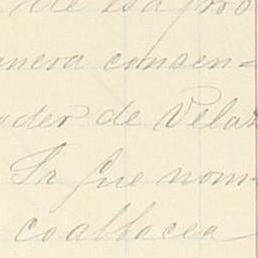 de esa pro
anera consen=
oder de Velaz
Sr fue nom-
coalbacea